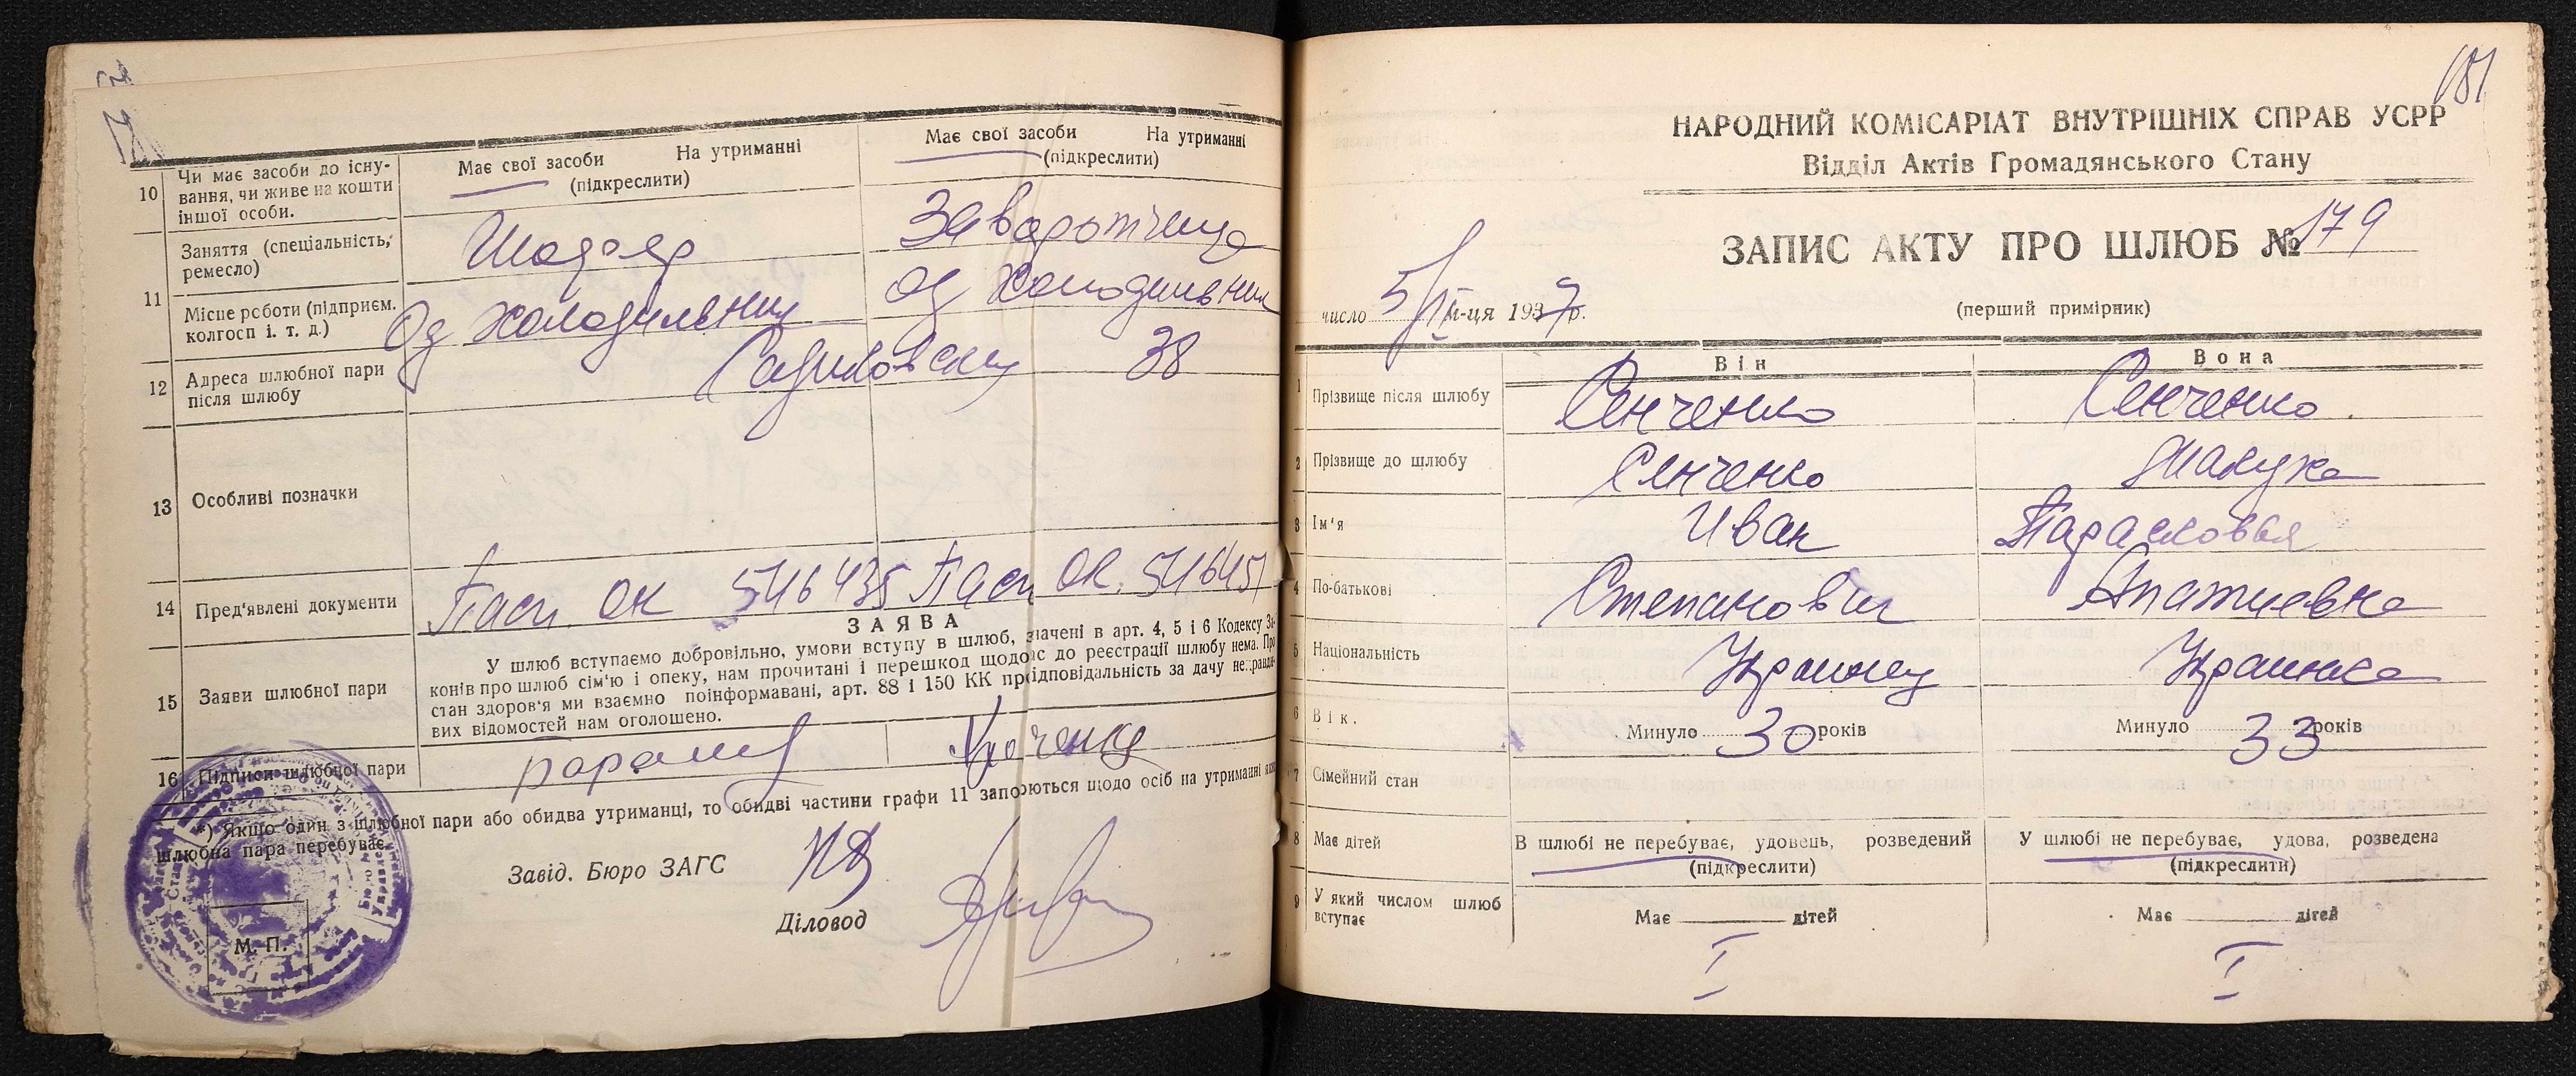 10 Чи має засоби до існу-
вання, чи живе на кошти
іншої особи.
Має свої засоби На утриманні
(підкреслити)
Має свої засоби На утриманні
(підкреслити)
11 Заняття (спеціальність,
ремесло)
Місце роботи (підприєм.
колгосп і. т. д.)
Од Холодильник
Од Холодильник
12 Адреса шлюбної пари
після шлюбу
38
13 Особливі позначки
14 Пред'явлені документи
Пасп. ОК 546435 Пасп ОК. 546451
15 Заяви шлюбної пари
ЗАЯВА
У шлюб вступаємо добровільно, умови вступу в шлюб, значені в арт. 4, 5 і 6 Кодексу За-
конів про шлюб сім'ю і опеку, нам прочитані і перешкод щодо с до реєстрації шлюбу нема. Про
стан здоров'я ми взаємно поінформавані, арт. 88 і 150 КК пр ідповідальність за дачу неправди-
вих відомостей нам оголошено.
16 Підписи шлюбної пари
*) Якщо один з шлюбної пари або обидва утриманці, то обидві частини графи 11 запо юються щодо осіб на утриманні яких
шлюбна пара перебуває.
Завід. Бюро ЗАГС
Діловод
М. П.
181
НАРОДНИЙ КОМІСАРІАТ ВНУТРІШНІХ СПРАВ УСРР
Відділ Актів Громадянського Стану
ЗАПИС АКТУ ПРО ШЛЮБ № 179
число 5/IV м-ця 1937 р.
(перший примірник)
Він Вона
1 Прізвище після шлюбу Сенченко Сенченко.
2 Прізвище до шлюбу Сенченко
3 Ім'я Иван Парасковья
4 По-батькові Степанович Ипатиевна
5 Національність Украинец Украинка
6 Вік. Минуло 30 років Минуло 33 років
7 Сімейний стан
8 Має дітей В шлюбі не перебуває, удовець, розведений
(підкреслити)
У шлюбі не перебуває, удова, розведена
(підкреслити)
9 У який числом шлюб
вступає
Має дітей Має дітей
I I